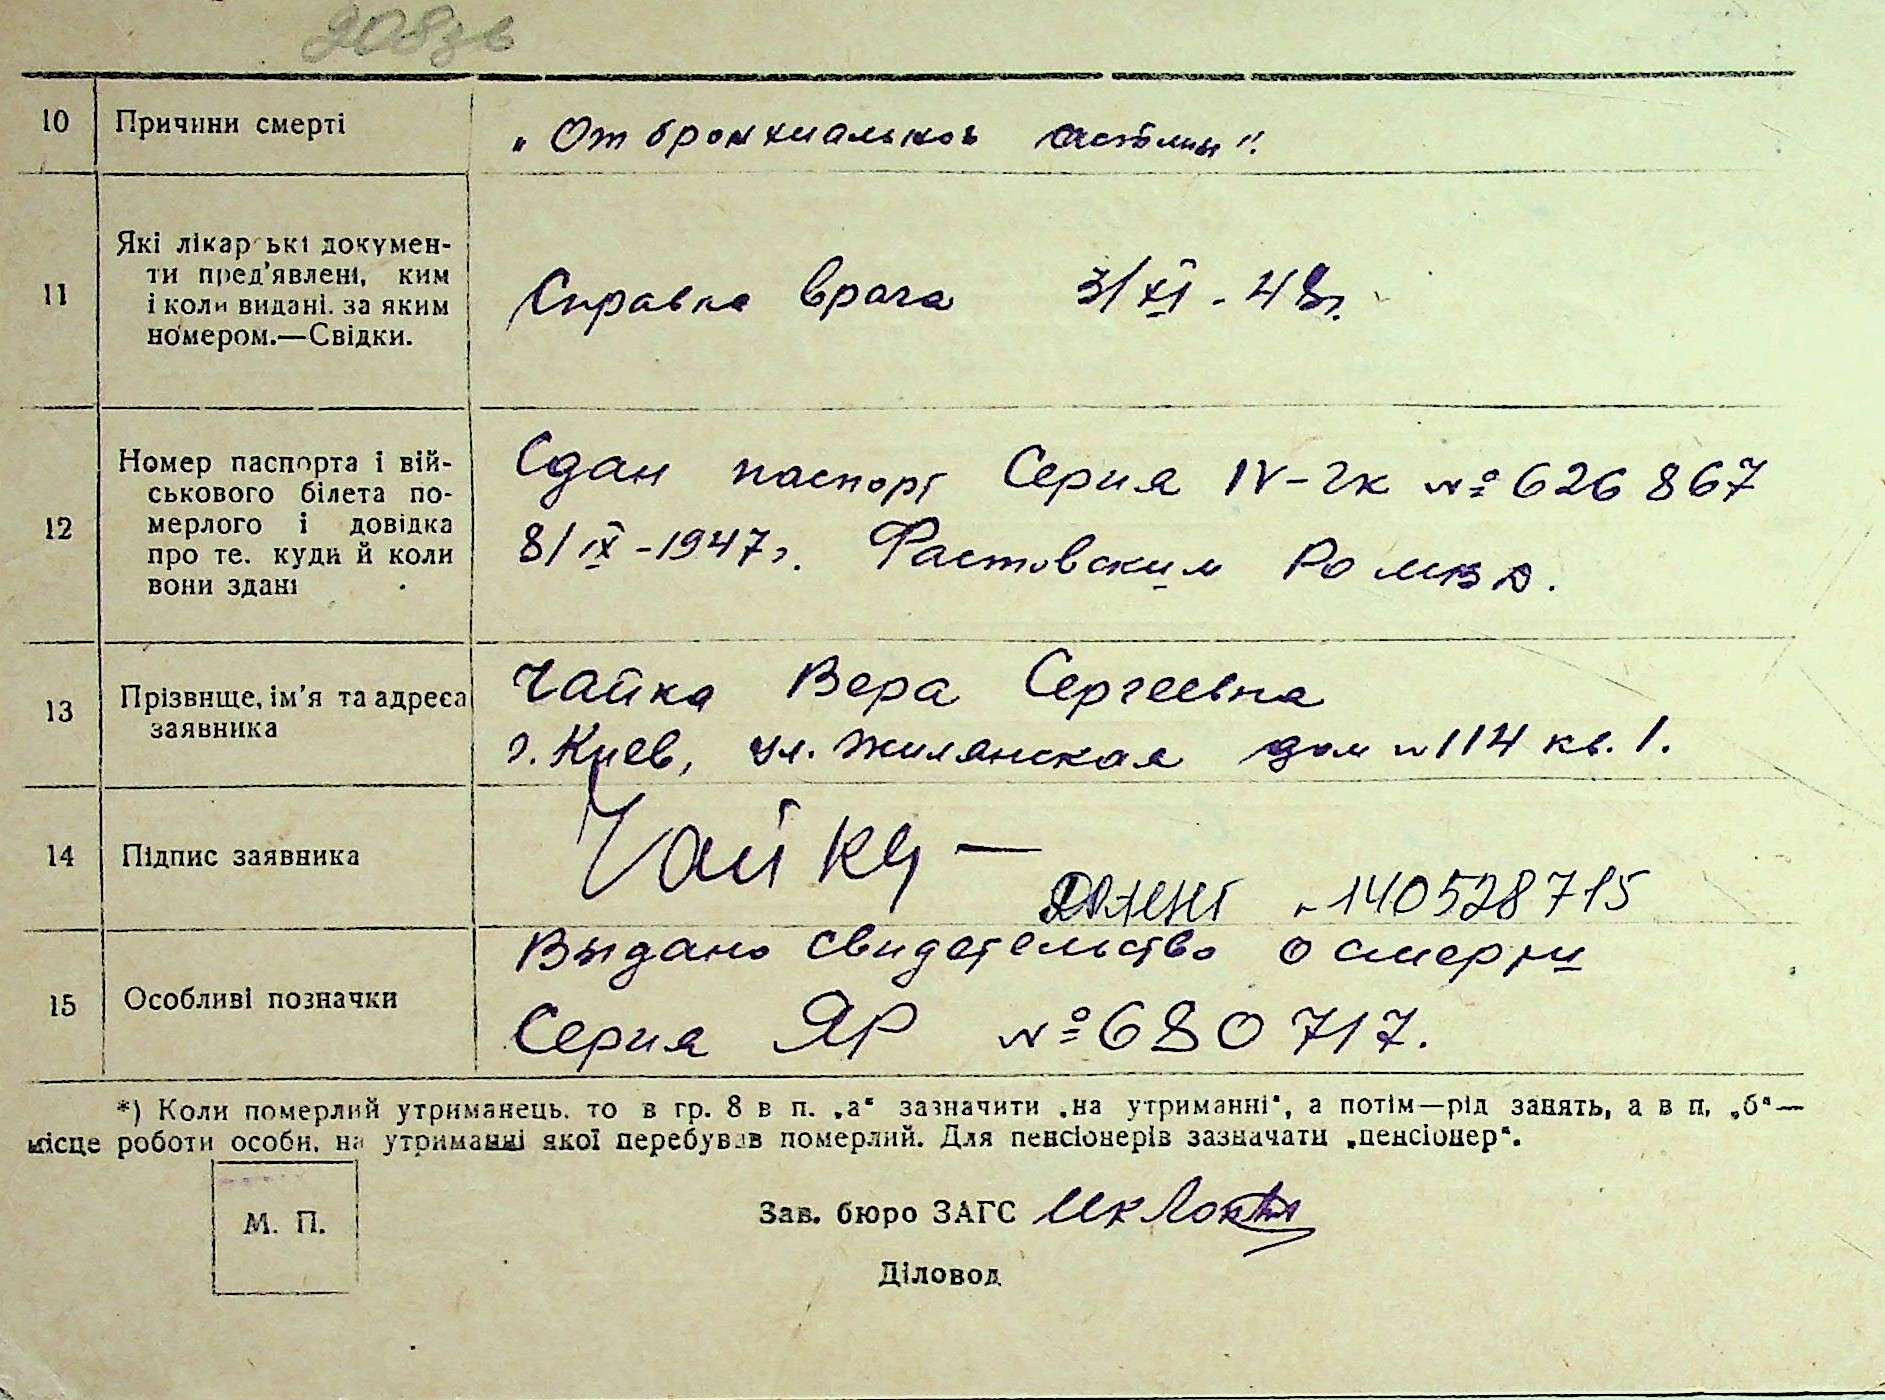 10 Причини смерті „От бронхиальной астмы".
11 Які лікарські докумен-
ти пред'явлені, ким
і коли видані, за яким
номером.—Свідки.
Справка врача 3/XI - 48г.
12 Номер паспорта і вій-
ськового білета по-
мерлого і довідка
про те, куди й коли
вони здані
Сдан паспорт Серия IV-ЧК №626867
8/IX-1947г. Фастовским РО МВД.
13 Прізвище, ім'я та адреса
заявника
Чайка Вера Сергеевна
г. Киев, ул. Жилянская дом №114 кв. 1.
14 Підпис заявника Чайка —
140528715
15 Особливі позначки
Выдано свидетельство о смерти
Серия ЯР №680717.
*) Коли померлий утриманець, то в гр. 8 в п. „а“ зазначити „на утриманні“, а потім—рід занять, а в п. „б“—
місце роботи особи, на утриманні якої перебував померлий. Для пенсіонерів зазначати „пенсіонер“.
М. П.
Зав. бюро ЗАГС
Діловод